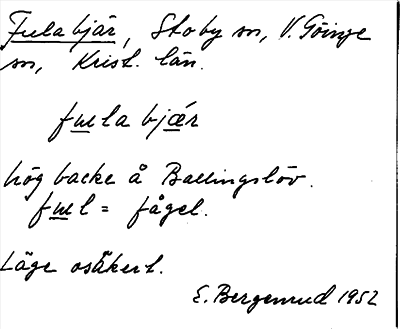 Fula bjär, Stoby sn, V. Göinge
sn, Krist. län.
fɯla bjǽr
hög backe å Ballingslöv.
fɯl = fågel.
Läge osäkert.
E. Bergenrud 1952